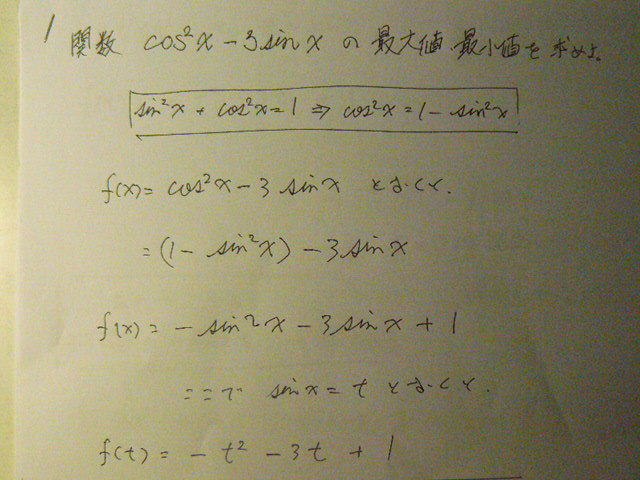 1 関数 cos²x - 3sinx の 最大値 最小値を 求めよ。
sin²x + cos²x = 1 ⇒ cos²x = 1 - sin²x
f(x) = cos²x - 3 sinx とおくと.
= (1 - sin²x) - 3sinx
f(x) = - sin²x - 3sinx + 1
ここで sinx = t とおくと.
f(t) = - t² - 3t + 1